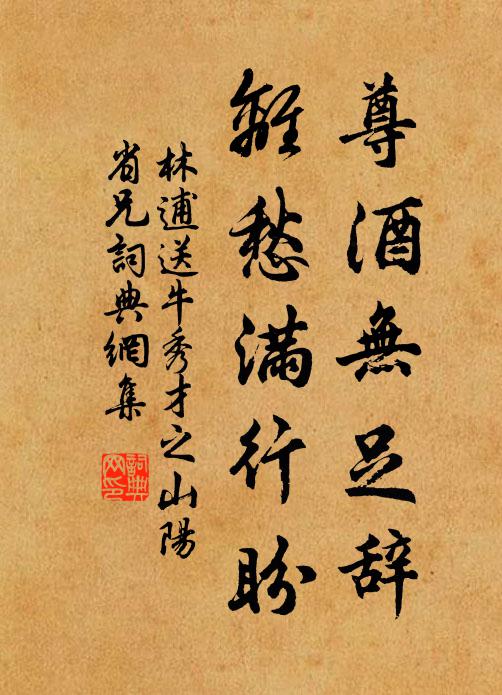 尊酒無足辞
離愁滿行盼
林逋送牛秀才之山陽
省兄詞典網集
詞典网印